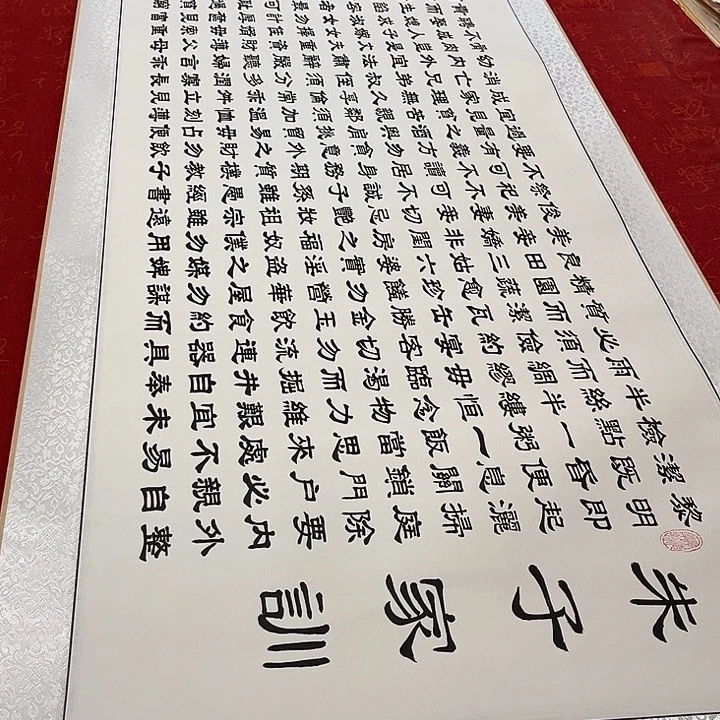 朱子家訓
黎明即起灑掃庭除要內外整
潔既昏便息關鎖門戶必親自
檢點一粥一飯當思來處不易
半絲半縷恒念物力維艱宜未
雨而綢繆毋臨渴而掘井自奉
必須儉約宴客切勿流連器具
質而潔瓦缶勝金玉飲食約而
精園蔬愈珍饈勿營華屋勿謀
良田三姑六婆實淫盜之媒婢
美妾嬌非閨房之福奴僕勿用
俊美妻妾切忌艷妝祖宗雖遠
祭祀不可不誠子孫雖愚經書
不可不讀居身務期質樸教子
要有義方勿貪意外之財勿飲
過量之酒與肩挑貿易毋占便
宜見貧苦親鄰須加溫恤刻薄
成家理無久享倫常乖舛立見
消亡兄弟叔侄須分多潤寡長
幼內外宜法肅辭嚴聽婦言乖
骨肉豈是丈夫重資財薄父母
不成人子嫁女擇佳婿毋索重